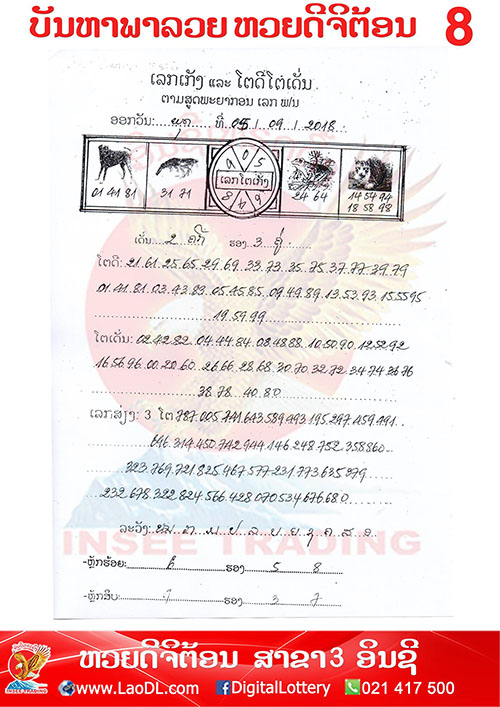 ບັນຫາພາລວຍ ຫວຍດີຈິຕ້ອນ 8
ເລກເກັງ ແລະ ໂຕດີໂຕເດັ່ນ
ຕາມສູດພະຍາກອນ ເລກ ຟ/ນ
ອອກວັນ: ພຸດ ທີ 05 / 09 / 2018
ເລກໂຕເກັງ
01 41 81
31 71
24 64
14 54 94
18 58 98
ເດັ່ນ 2 ຄີກ ຮອງ 3 ຄູ່
ໂຕດີ: 21 61 25 65 29 69 33 73 35 75 37 77 39 79
01 41 81 03 43 83 05 45 85 09 49 89 13 53 93 15 55 95
19 59 99
ໂຕເດັ່ນ: 02 42 82 04 44 84 08 48 88 10 50 90 12 52 92
16 56 96 00 20 60 26 66 28 68 30 70 32 72 34 74 36 76
38 78 40 80
ເລກສ່ຽງ: 3 ໂຕ 787 005 741 643 589 493 195 297 459 491
696 314 450 742 944 146 248 752 358 860
323 769 721 825 467 577 231 773 635 979
232 678 322 824 566 428 070 534 676 680
ລະວັງ:
INSEE TRADING
-ຫຼັກຮ້ອຍ: ຮອງ 5 8
-ຫຼັກສິບ: ຮອງ 3 7
ຫວຍດີຈິຕ້ອນ ສາຂາ3 ອິນຊີ
INSEE TRADING
www.LaoDL.com DigitalLottery 021 417 500